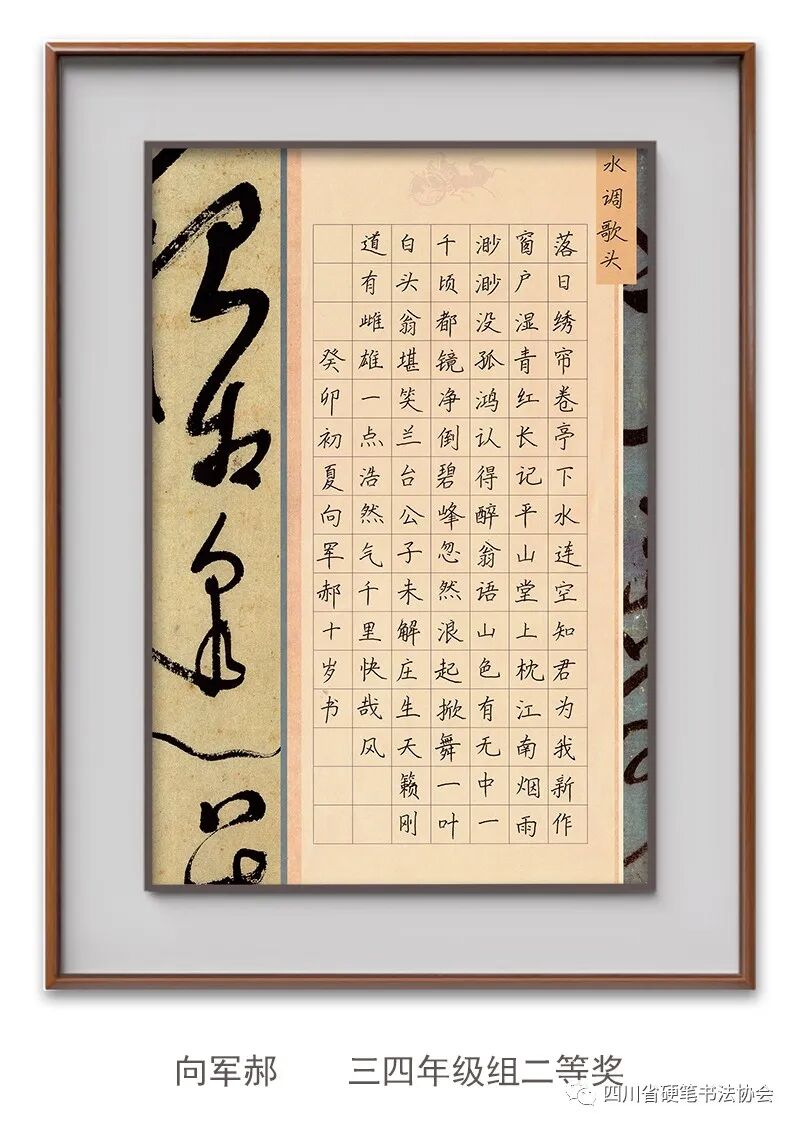 水调歌头
落日绣帘卷亭下水连空知君为我新作
窗户湿青红长记平山堂上枕江南烟雨
渺渺没孤鸿认得醉翁语山色有无中一
千顷都镜净倒碧峰忽然浪起掀舞一叶
白头翁堪笑兰台公子未解庄生天籁刚
道有雌雄一点浩然气千里快哉风
癸卯初夏向军郝十岁书
向军郝 三四年级组二等奖
四川省硬笔书法协会